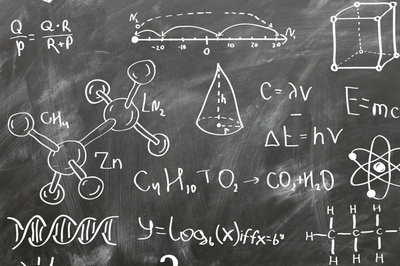 Q/P = Q·R/R+P
N₀ N₁
-20 -10 0 10 20 30
CH₄
LN₂
Zn
h
r
C = λV
E=mc
ΔE = hV
C₄H₁₀ + O₂ → CO₂+H₂O
y=Log₆(x)iffx=6ʸ
H H H
H C C C H
H H H
?